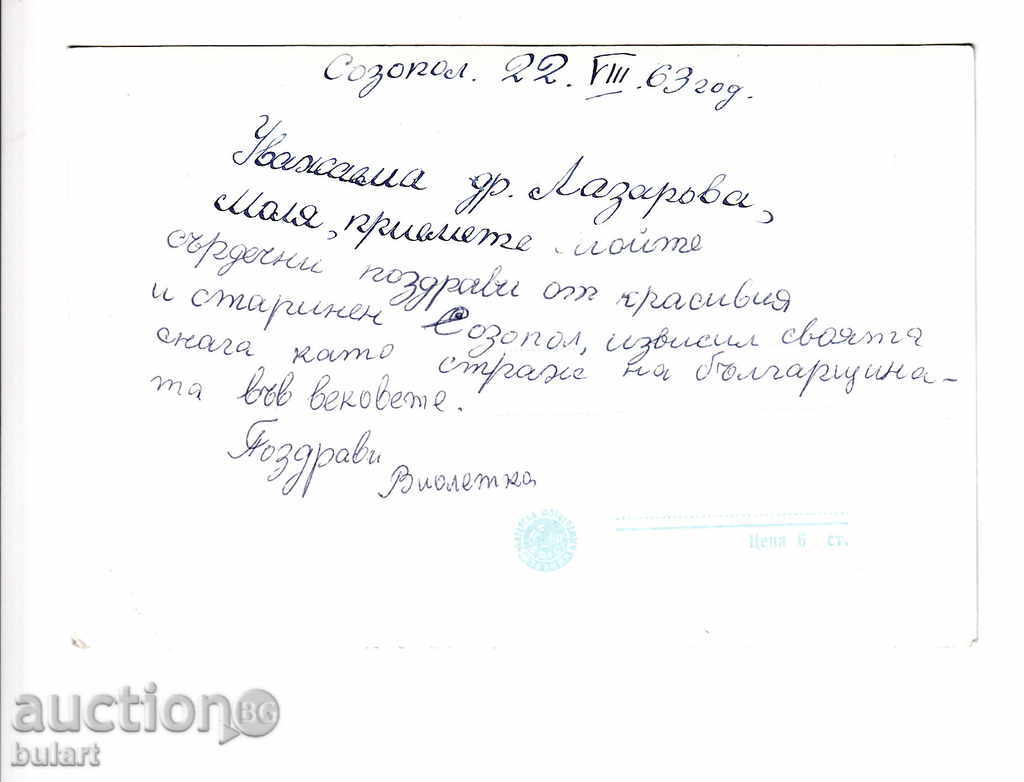 Созопол. 22. VIII. 63 год.
Уважаема др. Лазарова,
Моля, приемете мойте
сърдечни поздрави от красивия
и старинен Созопол, извисил своята
снага като страж на българщина-
та във вековете.
Поздрави
Виолетка
Цена 6 ст.
auction BG
bulart